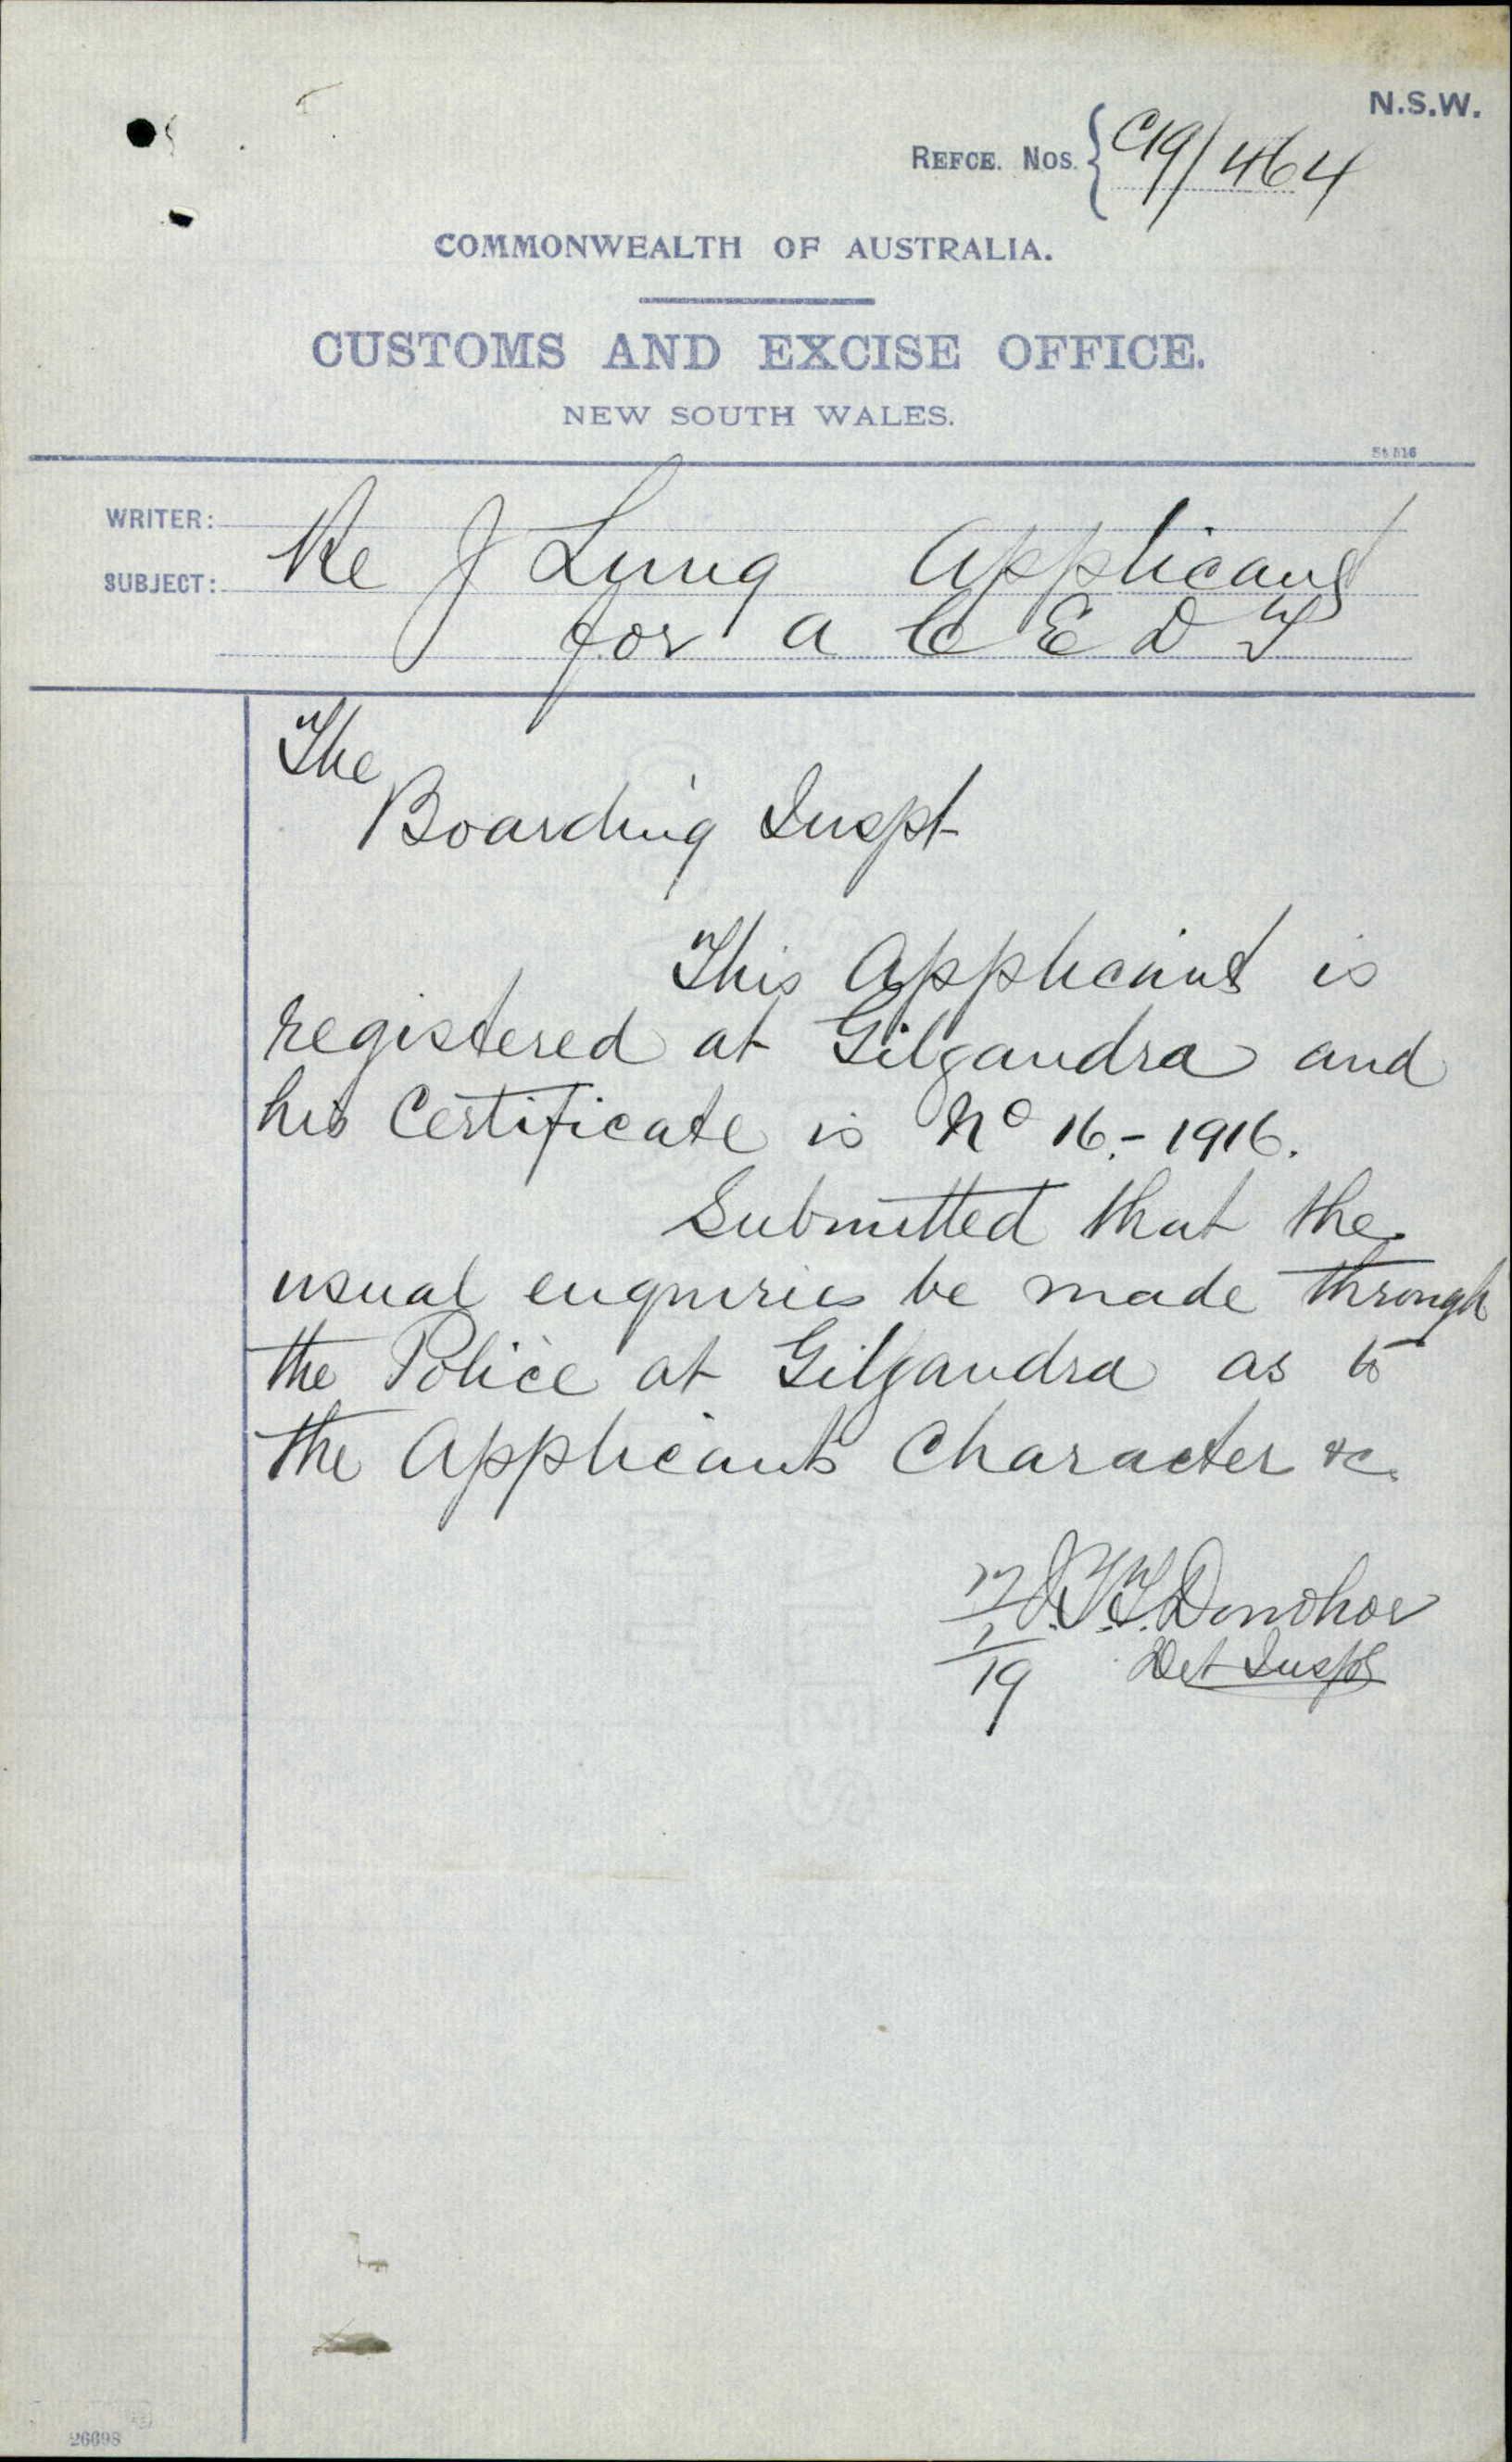 N.S.W.
REFCE. NOS. { C19/464
COMMONWEALTH OF AUSTRALIA.
CUSTOMS AND EXCISE OFFICE.
NEW SOUTH WALES.
WRITER:
SUBJECT: Re J Lung Applicant
for a C E D T
The
Boarding Inspt
This Applicant is
registered at Gilgandra and
his Certificate is No 16.-1916.
Submitted that the
usual enquiries be made through
the Police at Gilgandra as to
the Applicants Character &c.
J.T.T. Donohoe
Det Inspr
/1/19
26698